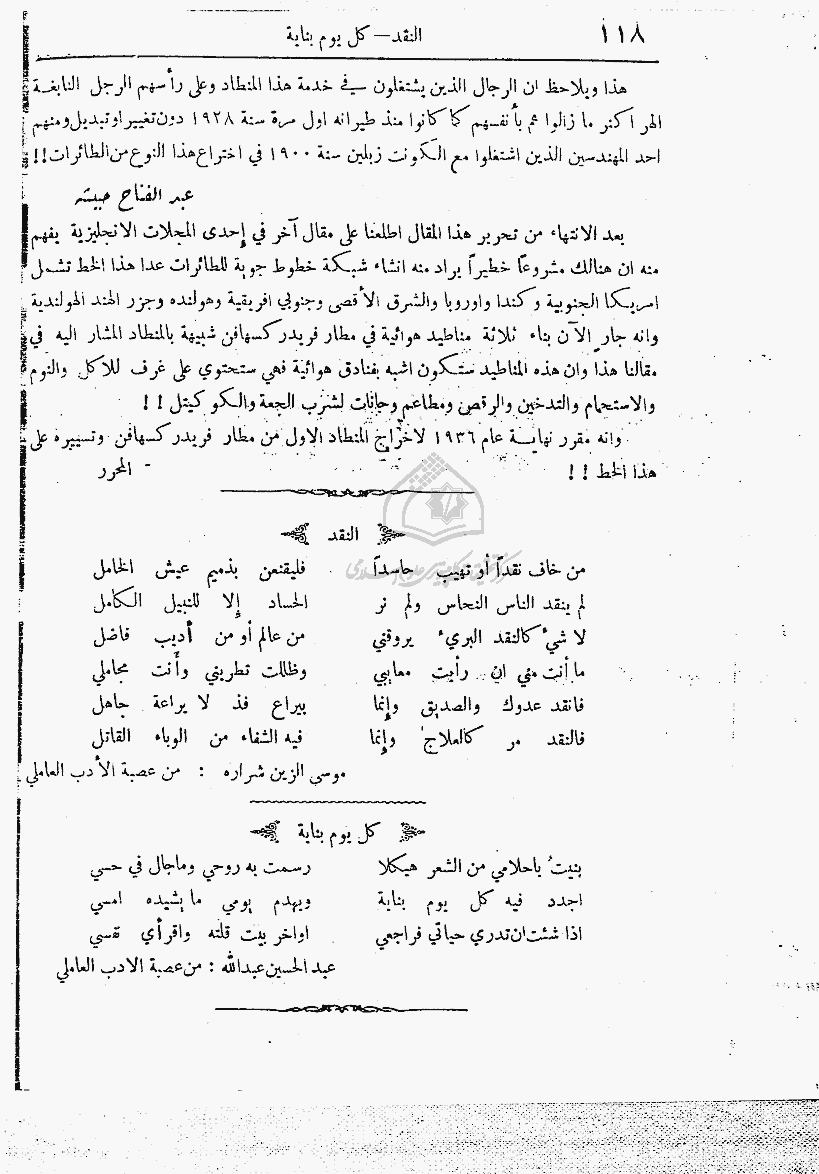 ١١٨
النقد — كل يوم بناية
هذا ويلاحظ ان الرجال الذين يشتغلون في خدمة هذا المنطاد وعلى رأسهم الرجل النابغة
الهر اكنر ما زالوا هم بأنفسهم كما كانوا منذ طيرانه اول مرة سنة ١٩٢٨ دون تغيير او تبديل ومنهم
احد المهندسين الذين اشتغلوا مع الكونت زبلين سنة ١٩٠٠ في اختراع هذا النوع من الطائرات!!
عبد الفتاح
بعد الانتهاء من تحرير هذا المقال اطلعنا على مقال آخر في إحدى المجلات الانجليزية يفهم
منه ان هنالك مشروعاً خطيراً يراد منه انشاء شبكة خطوط جوية للطائرات عدا هذا الخط تشمل
امريكا الجنوبية وكندا واوروبا والشرق الأقصى وجنوبي افريقية وهولنده وجزر الهند الهولندية
وانه جار الآن بناء ثلاثة مناطيد هوائية في مطار فريدركسهافن شبيهة بالمنطاد المشار اليه في
مقالنا هذا وان هذه المناطيد ستكون اشبه بفنادق هوائية فهي ستحتوي على غرف للاكل والنوم
والاستحمام والتدخين والرقص ومطاعم وحانات لشرب الجعة والكوكيتل !!
وانه مقرر نهاية عام ١٩٣٦ لاخراج المنطاد الاول من مطار فريدركسهافن وتسييره على
هذا الخط !! المحرر
النقد
من خاف نقداً أو تهيب حاسداً فليقنعن بذميم عيش الخامل
لم ينقد الناس النحاس ولم نر الحساد إلا للنبيل الكامل
لا شيء كالنقد البريء يروقني من عالم أو من أديب فاضل
ما أنت مني ان رأيت معايبي وظللت تطريني وأنت مجاملي
فانقد عدوك والصديق وإنما بيراع فذ لا يراعة جاهل
فالنقد مر كالعلاج وإنما فيه الشفاء من الوباء القاتل
موسى الزين شراره : من عصبة الأدب العاملي
كل يوم بناية
بنيت باحلامي من الشعر هيكلا رسمت به روحي وماجال في حسي
اجدد فيه كل يوم بناية ويهدم يومي ما يشيده امسي
اذا شئت ان تدري حياتي فراجعي اواخر بيت قلته واقرأي نفسي
عبد الحسين عبدالله : من عصبة الادب العاملي